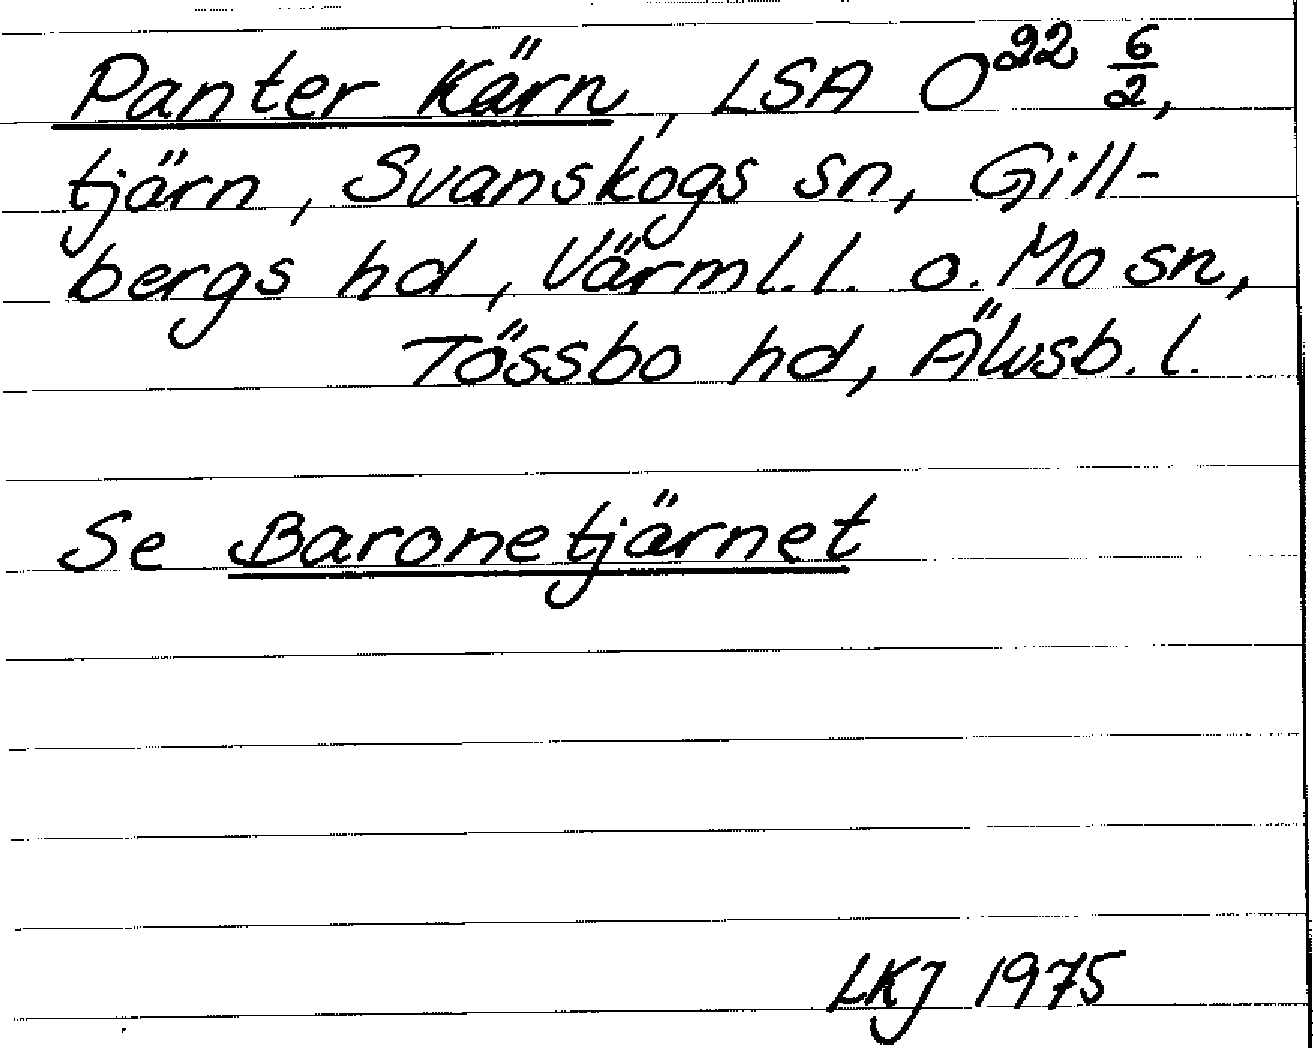 Panter Kärn, LSA O²² 6/2,
tjärn, Svanskogs sn, Gill-
bergs hd, Värml.l. o. Mo sn,
Tössbo hd, Älvsb.l.
Se Baronetjärnet
LKJ 1975